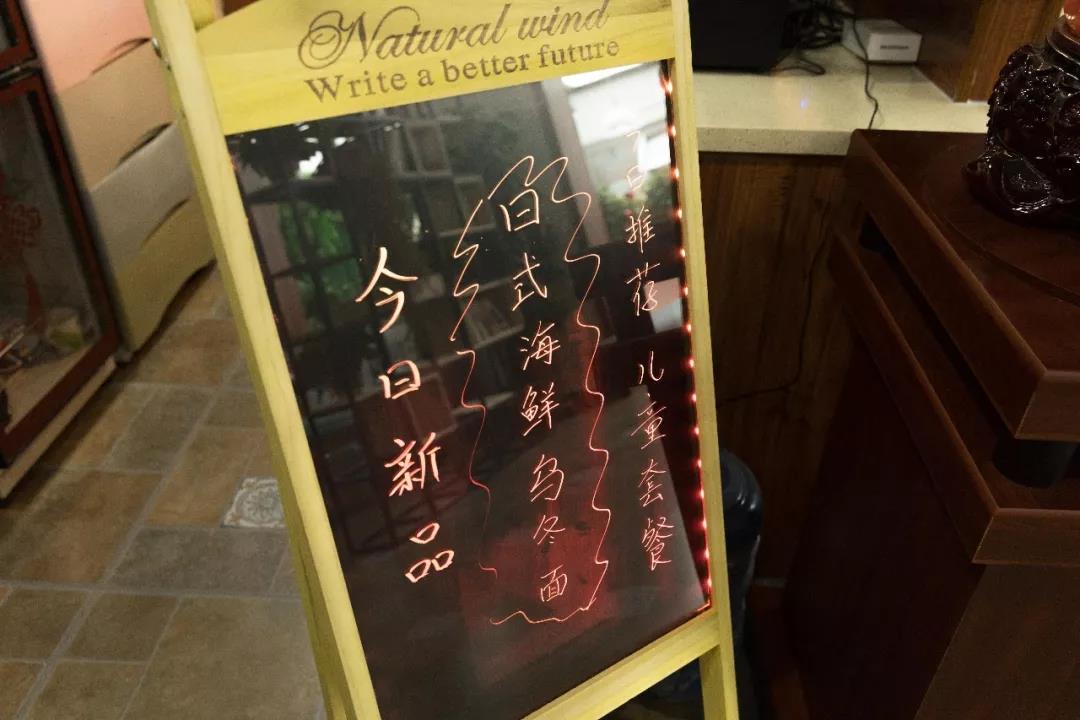 Natural wind
Write a better future
今日新品
日式海鲜乌冬面
日推荐 儿童套餐